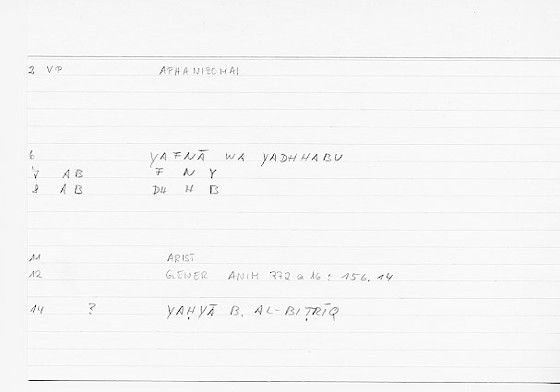 2 VP APHANIZOMAI
6 YAFNĀ WA YADHHABU
7 AB F N Y
8 AB DH H B
11 ARIST
12 GENER ANIM 772 a 16 : 156.14
14 ? YAḤYĀ B. AL-BIṬRĪQ